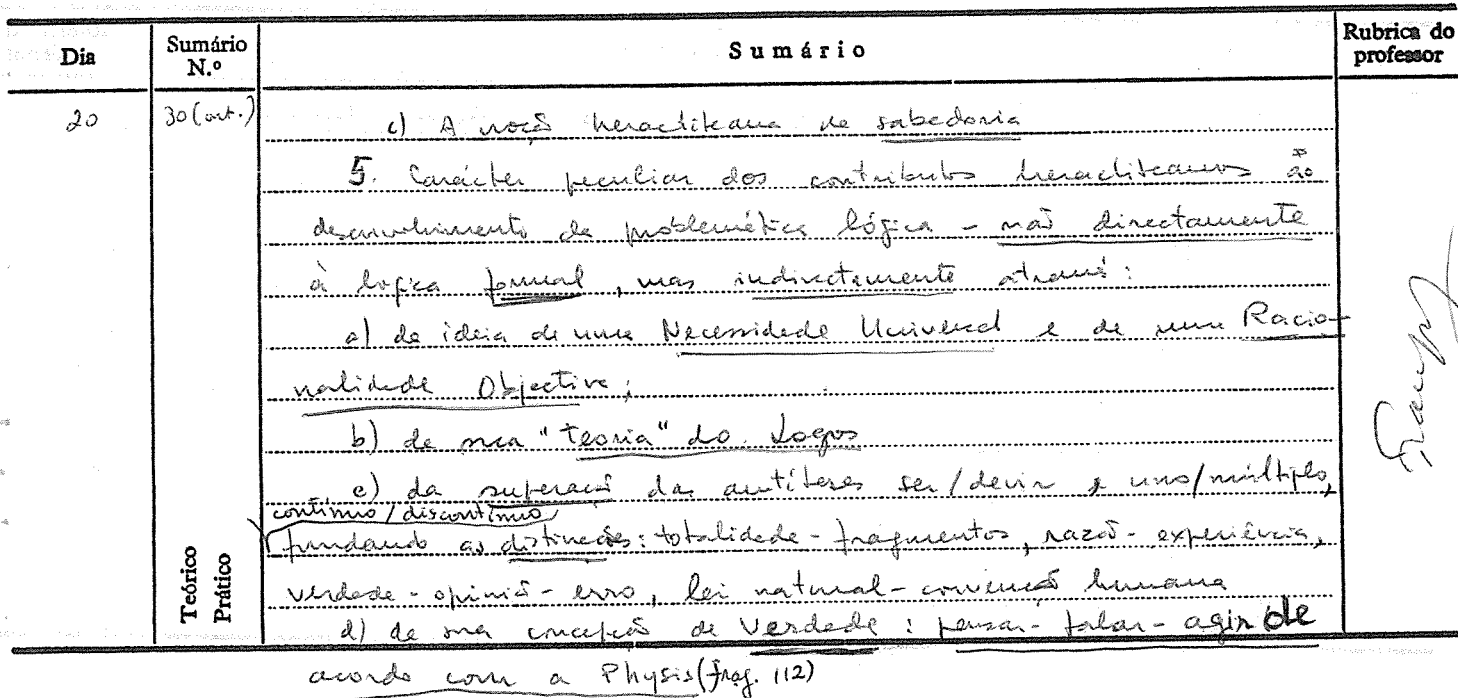 Dia Sumário N.º Sumário Rubrica do professor
20 30 (cont.) c) A noção heracliteana de sabedoria
5. Carácter peculiar dos contributos heracliteanos ao
desenvolvimento da problemática lógica - não directamente
à lógica formal, mas indirectamente através:
a) da ideia de uma Necessidade Universal e de uma Racio-
nalidade Objectiva;
b) de sua "teoria" do Logos
c) da superação das antíteses ser/devir e uno/múltiplo,
contínuo/discontínuo
fundando as distinções: totalidade - fragmentos, razão - experiência,
verdade - opinião - erro, lei natural - convenção humana
d) de sua concepção de Verdade: pensar - falar - agir de
acordo com a Physis (frag. 112)
Teórico
Prático